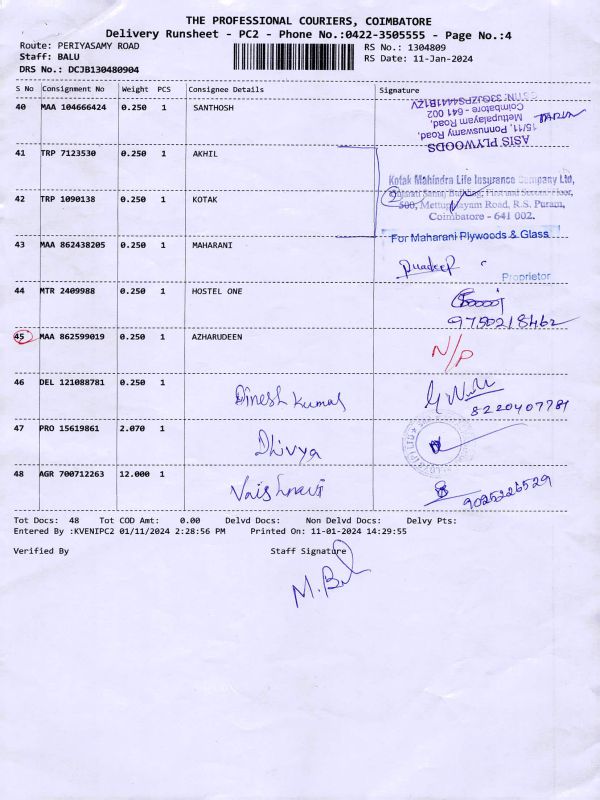 THE PROFESSIONAL COURIERS, COIMBATORE
Delivery Runsheet - PC2 - Phone No.:0422-3505555 - Page No.:4
Route: PERIYASAMY ROAD
RS No.: 1304809
Staff: BALU
RS Date: 11-Jan-2024
DRS No.: DCJB130480904
S No Consignment No Weight PCS Consignee Details Signature
40 MAA 104666424 0.250 1 SANTHOSH
ASIS PLYWOODS
15/11, Ponnuswamy Road,
Mettupalayam Road,
Coimbatore - 641 002
41 TRP 7123530 0.250 1 AKHIL
Kotak Mahindra Life Insurance Company Ltd,
42 TRP 1090138 0.250 1 KOTAK
2
500, Mettupalayam Road, R.S. Puram,
Coimbatore - 641 002.
43 MAA 862438205 0.250 1 MAHARANI
For Maharani Plywoods & Glass
Pradeep
Proprietor
44 MTR 2409988 0.250 1 HOSTEL ONE
9750218462
45 MAA 862599019 0.250 1 AZHARUDEEN
N/P
46 DEL 121088781 0.250 1 Dinesh Kumar
8220407781
47 PRO 15619861 2.070 1 Dhivya
48 AGR 700712263 12.000 1 Vaishnavi
9025226529
Tot Docs: 48 Tot COD Amt: 0.00 Delvd Docs: Non Delvd Docs: Delvy Pts:
Entered By :KVENIPC2 01/11/2024 2:28:56 PM Printed On: 11-01-2024 14:29:55
Verified By Staff Signature
M.Bal